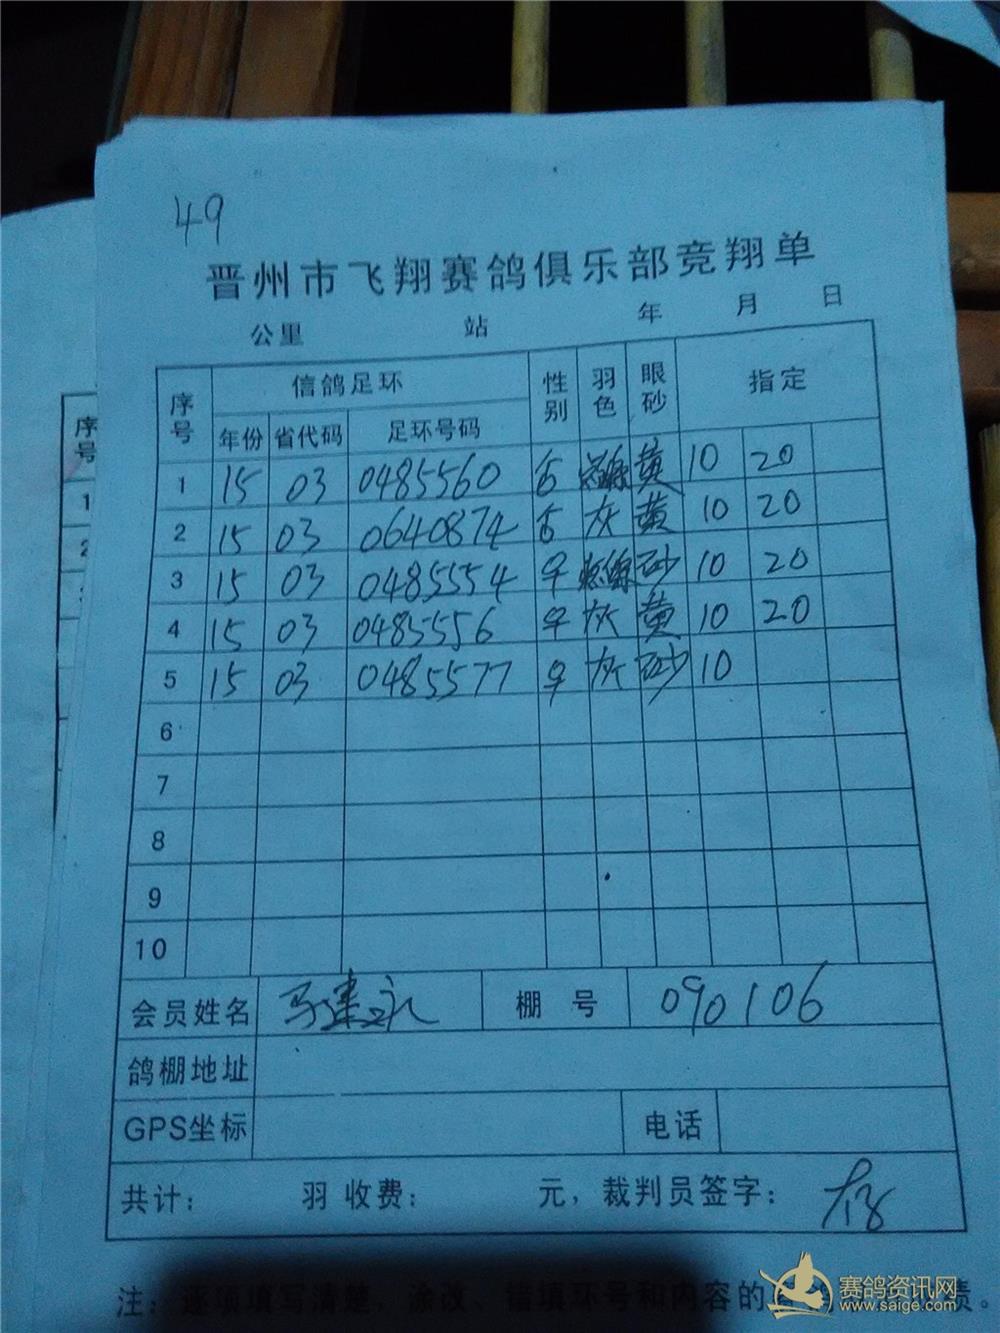 49
晋州市飞翔赛鸽俱乐部竞翔单
公里 站 年 月 日
序号 信鸽足环 性别 羽色 眼砂 指定
年份 省代码 足环号码
1 15 03 0485560 黄 10 20
2 15 03 0640874 灰 黄 10 20
3 15 03 0485554 ♀ 砂 10 20
4 15 03 0485556 ♀ 灰 黄 10 20
5 15 03 0485577 ♀ 灰 砂 10
6
7
8
9
10
会员姓名 马建永 棚号 090106
鸽棚地址
GPS坐标 电话
共计： 羽 收费： 元，裁判员签字：
注：逐项填写清楚，涂改、错填环号和内容的
序号
赛鸽资讯网
www.saige.com